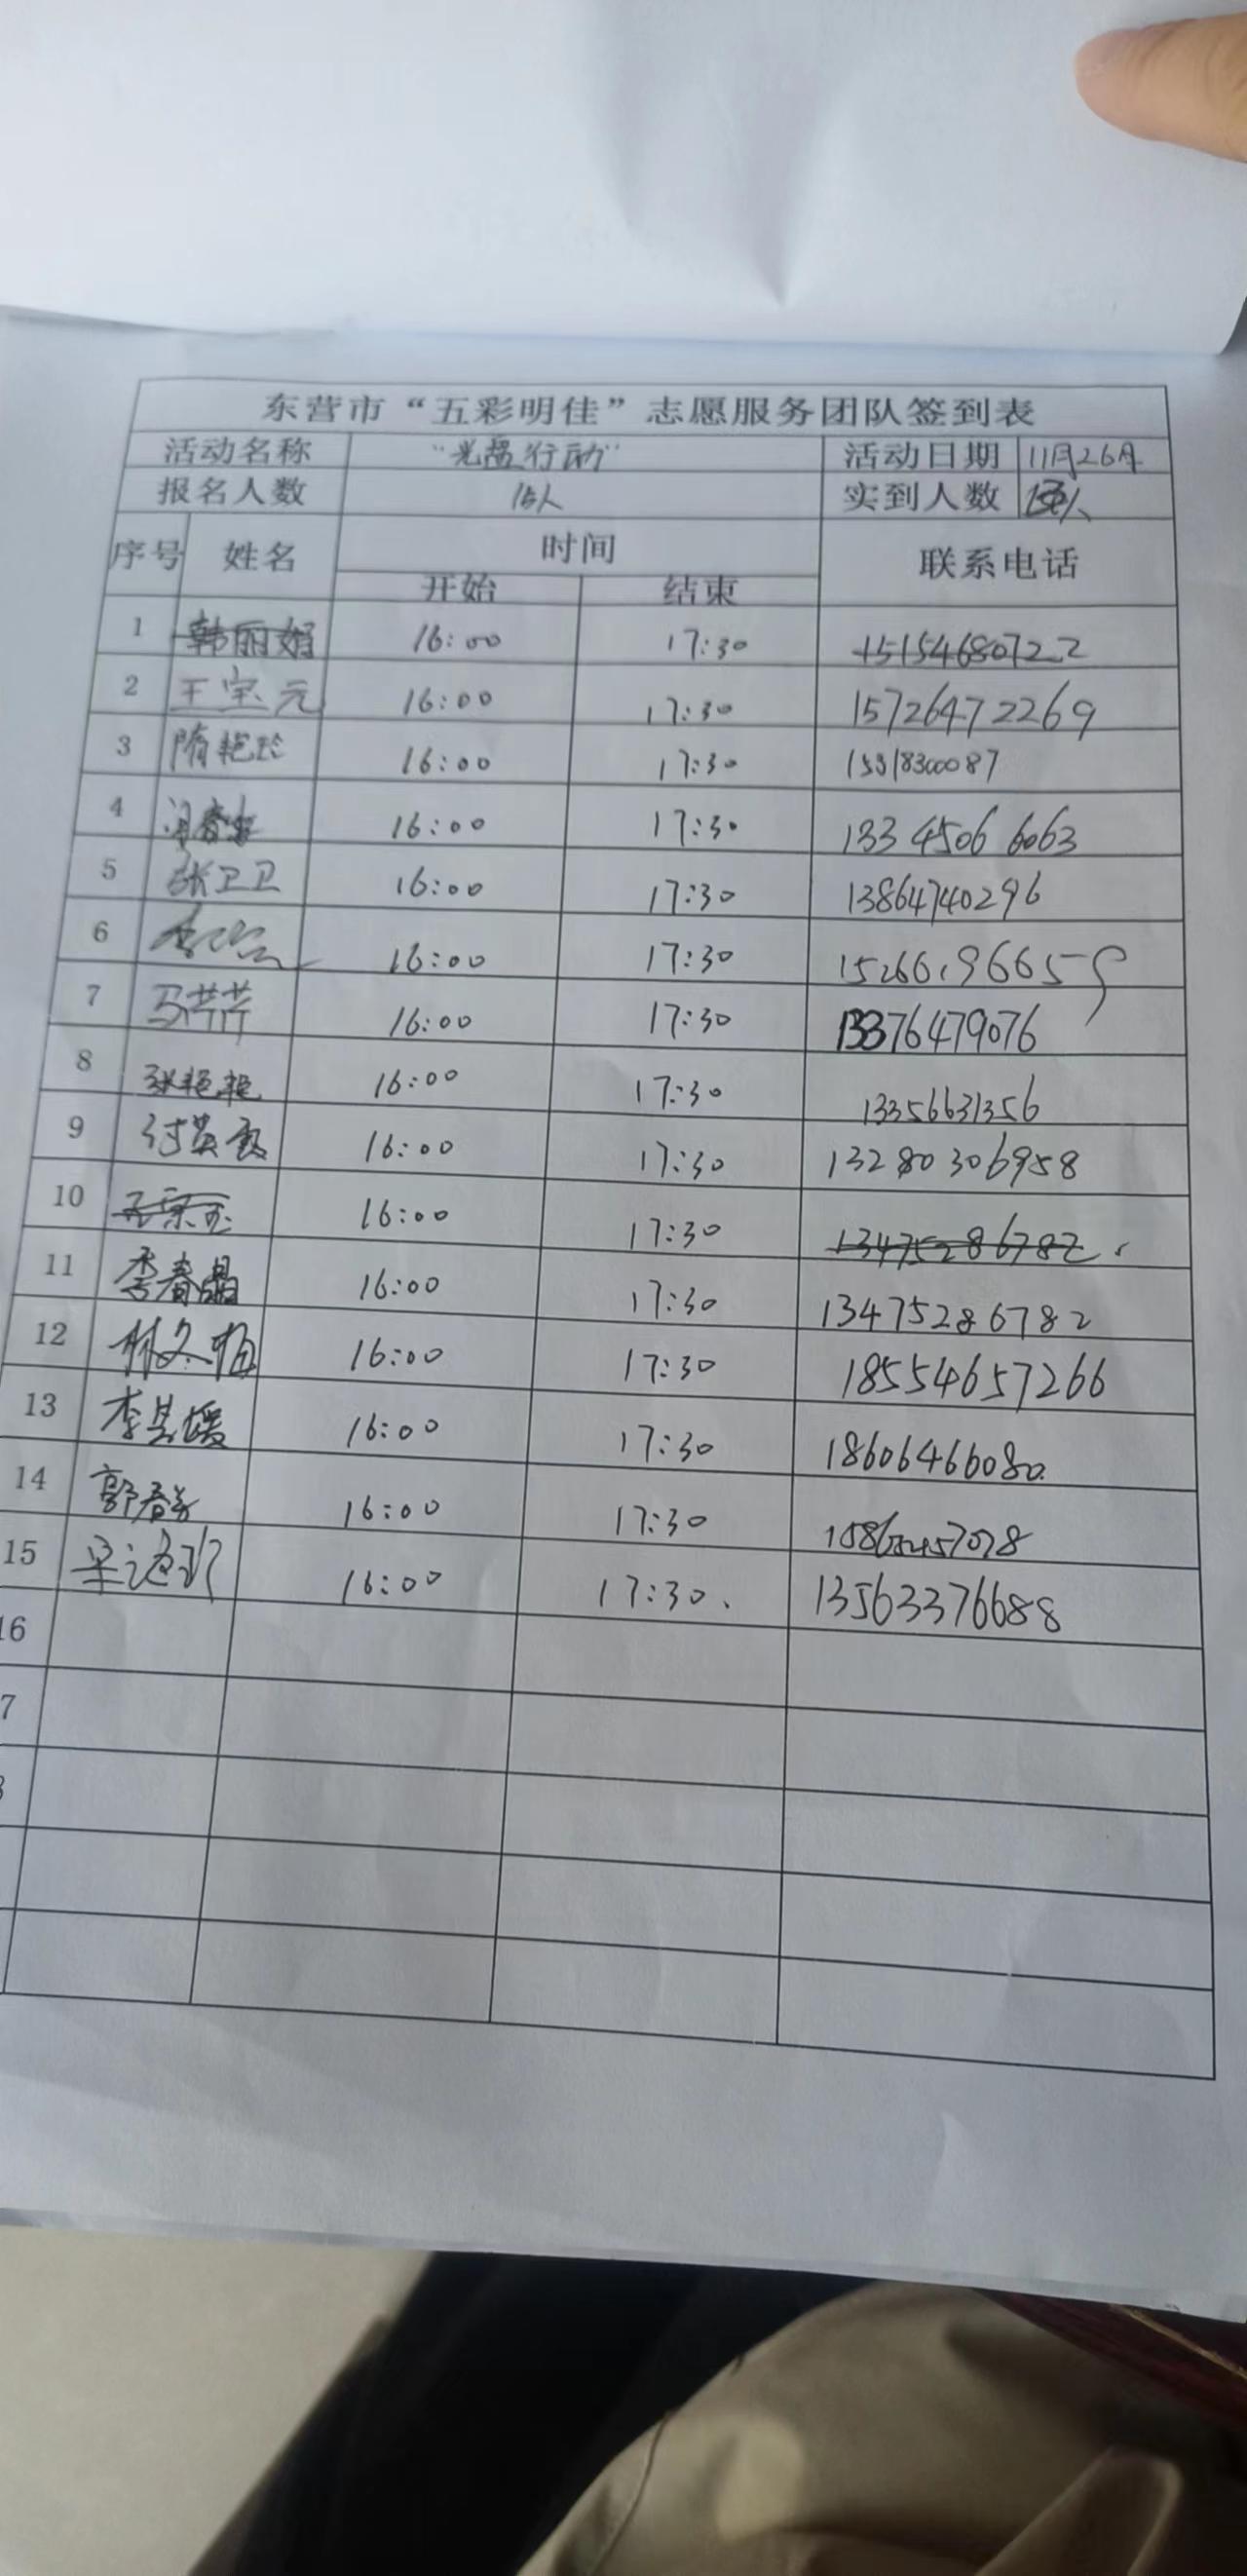 东营市“五彩明佳”志愿服务团队签到表
活动名称 “光盘行动” 活动日期 11月26日
报名人数 15人 实到人数
序号 姓名 时间 联系电话
开始 结束
1 韩丽娟 16:00 17:30 15154680722
2 王宝元 16:00 17:30 15726472269
3 隋艳玲 16:00 17:30 15318300087
4 16:00 17:30 133 4506 6063
5 张卫卫 16:00 17:30 13864740296
6 16:00 17:30
7 马芹芹 16:00 17:30 13376479076
8 张艳艳 16:00 17:30 13356631356
9 付英霞 16:00 17:30 13280306958
10 16:00 17:30 13475286782
11 李春晶 16:00 17:30 13475286782
12 林久梅 16:00 17:30 18554657266
13 李芸媛 16:00 17:30 18606466080
14 郭春芳 16:00 17:30
15 16:00 17:30 13563376688
16
7